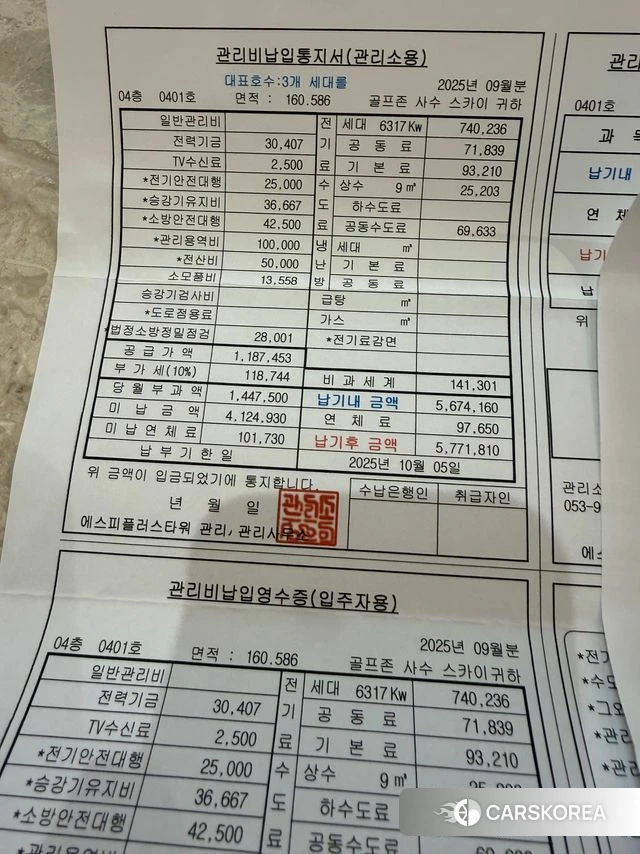 관리비납입통지서(관리소용)
대표호수:3개 세대를 2025년 09월분
04층 0401호 면적 : 160.586 골프존 사수 스카이 귀하
일반관리비 전 세대 6317Kw 740,236
전력기금 30,407 기 공 동 료 71,839
TV수신료 2,500 료 기 본 료 93,210
*전기안전대행 25,000 수 상수 9㎥ 25,203
*승강기유지비 36,667 도 하수도료
*소방안전대행 42,500 료 공동수도료 69,633
*관리용역비 100,000 냉 세대 ㎥
*전산비 50,000 난 기 본 료
소모품비 13,558 방 공 동 료
승강기검사비 급탕 ㎥
*도로점용료 가스 ㎥
*법정소방정밀점검 28,001 *전기료감면
공 급 가 액 1,187,453
부 가 세(10%) 118,744 비 과 세 계 141,301
당 월 부 과 액 1,447,500 납기내 금액 5,674,160
미 납 금 액 4,124,930 연 체 료 97,650
미 납 연 체 료 101,730 납기후 금액 5,771,810
납 부 기 한 일 2025년 10월 05일
위 금액이 입금되었기에 통지합니다. 수납은행인 취급자인
년 월 일
에스피플러스타워 관리, 관리사무소
관리비납입영수증(입주자용)
2025년 09월분
04층 0401호 면적 : 160.586 골프존 사수 스카이귀하
일반관리비 전 세대 6317Kw 740,236
전력기금 30,407 기 공 동 료 71,839
TV수신료 2,500 료 기 본 료 93,210
*전기안전대행 25,000 수 상수 9㎥
*승강기유지비 36,667 도 하수도료
*소방안전대행 42,500 료 공동수도료
0401호
과 목
납기내
연 체
납기
납
위
관리소
053-9
에스
*전기
*수도
*그외
*관리
CARSKOREA